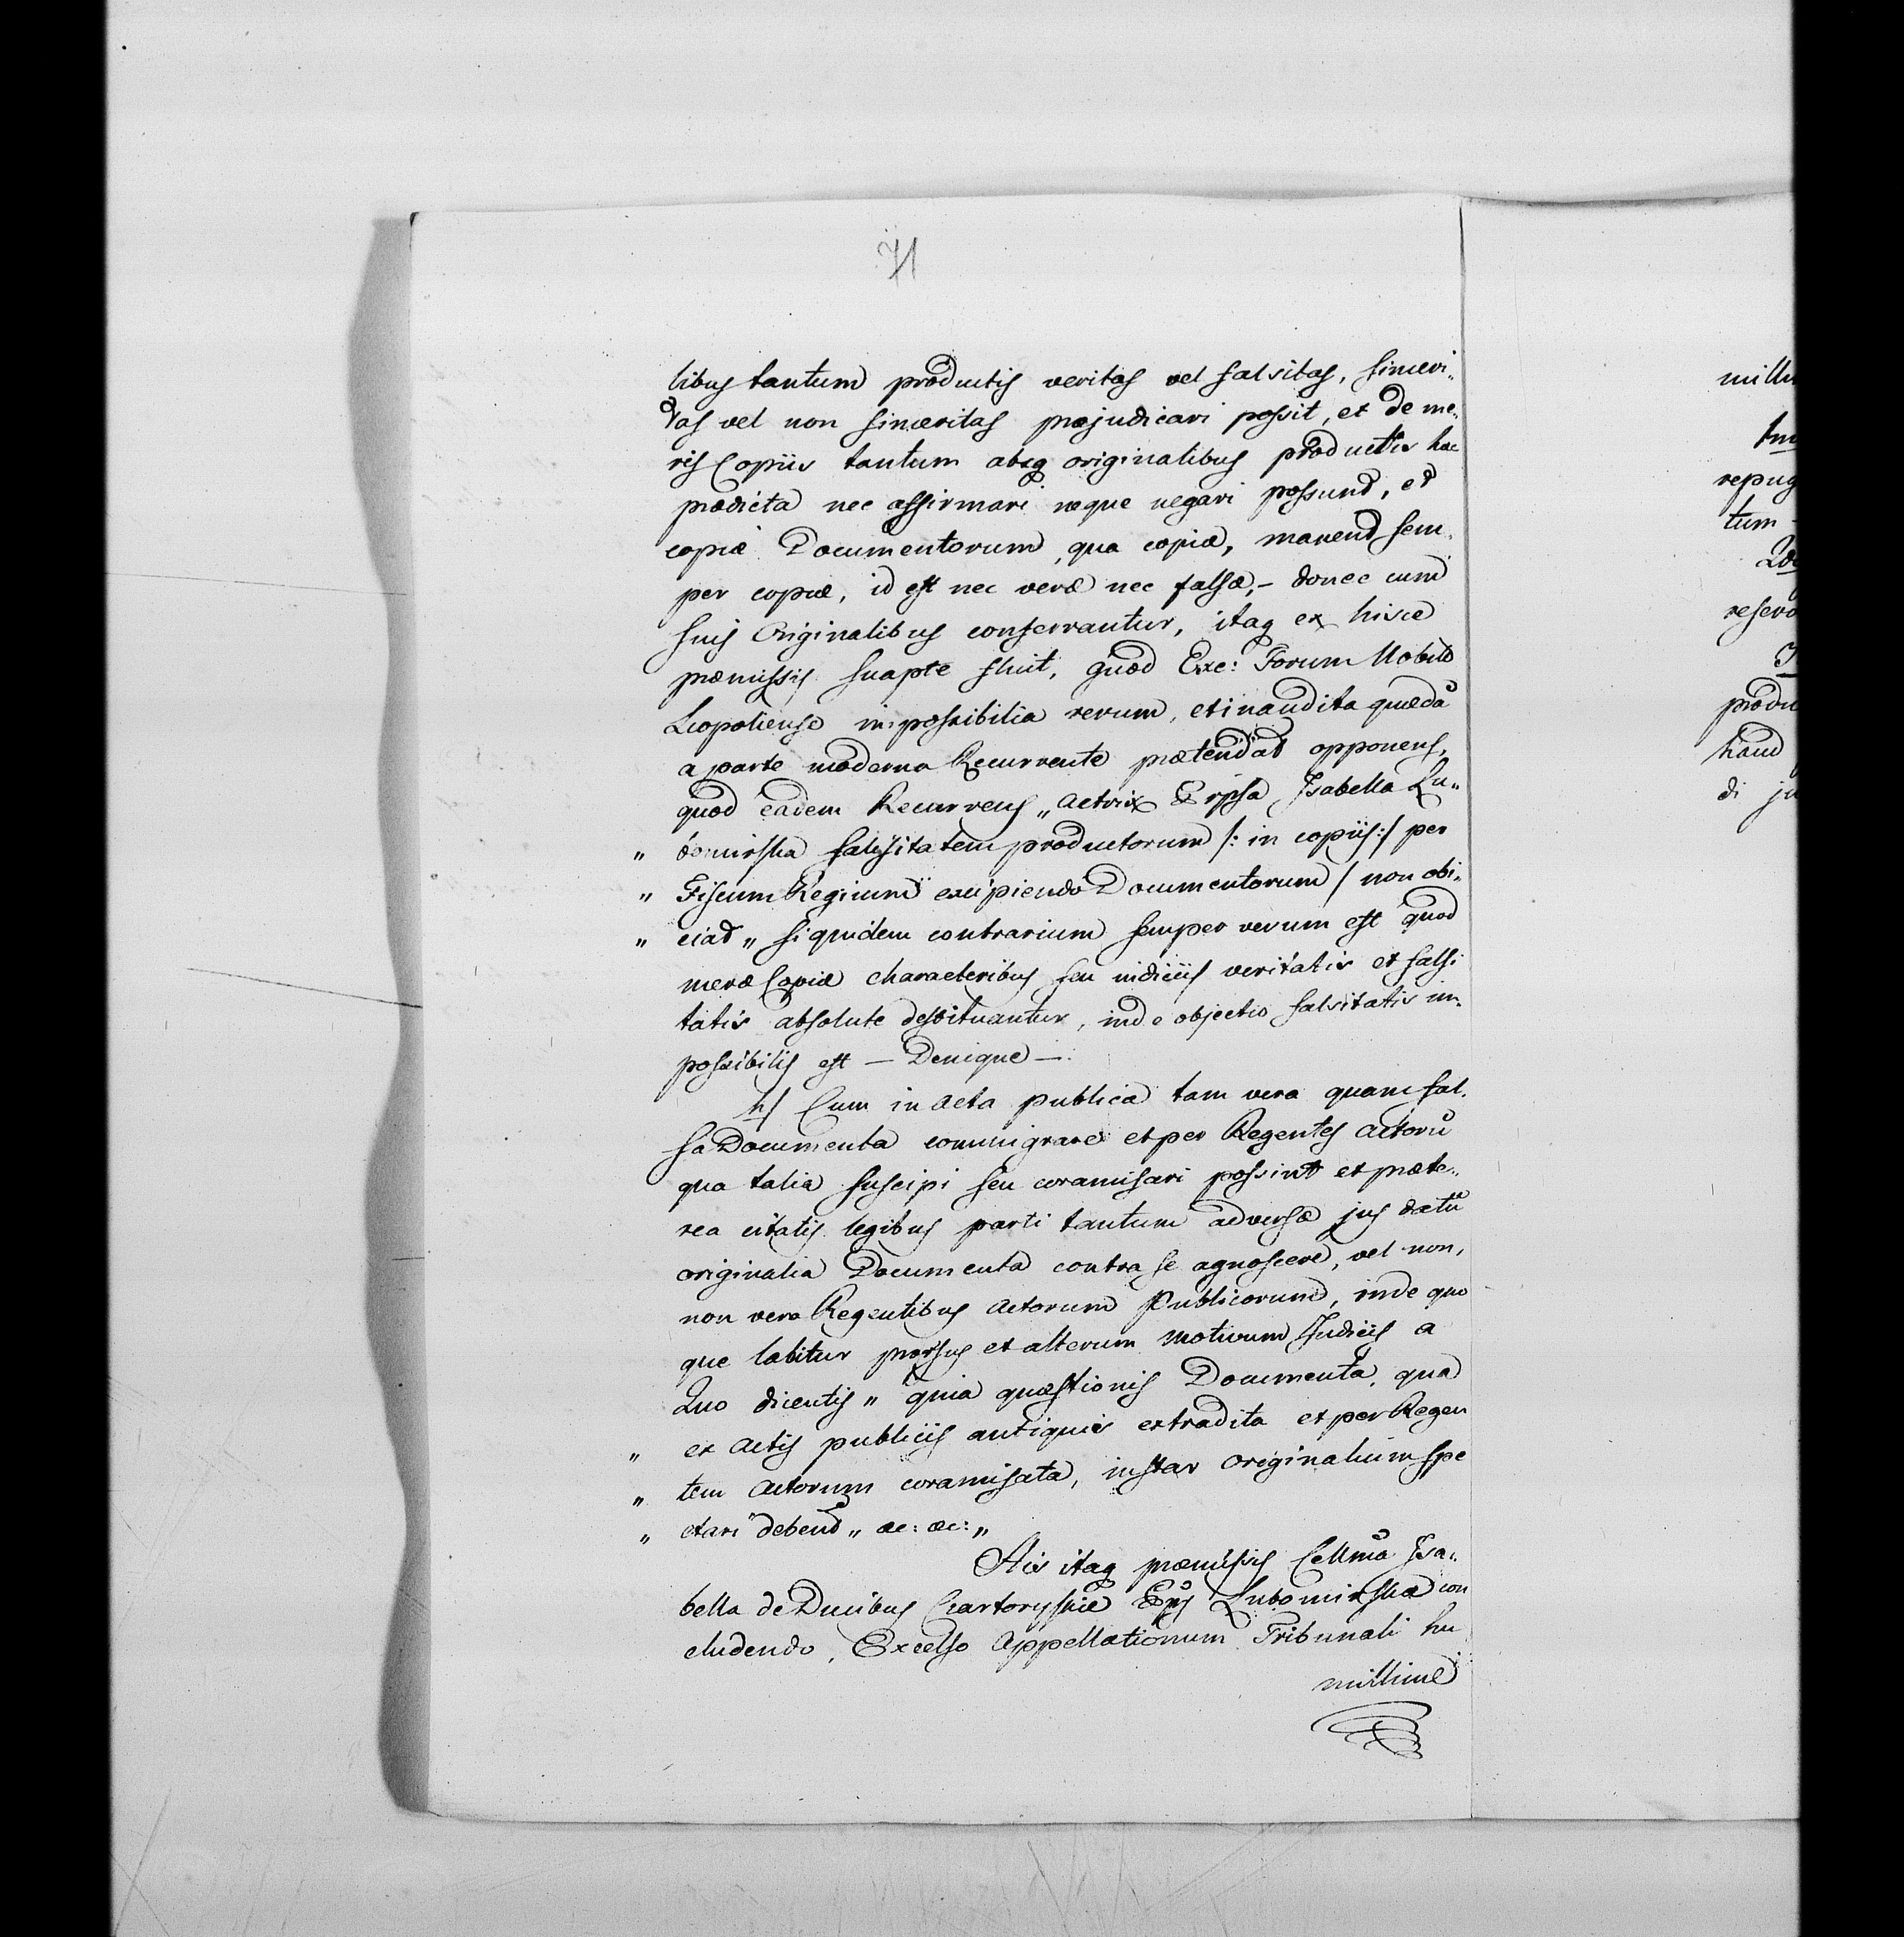 71
libus tantum productis veritas vel falsitas, sinceri„
tas vel non sinceritas præjudicari possit, et de me„
ris Copiis tantum absq originalibus productis hæc
prædicta nec affirmari neque negari possunt, et
copiæ Documentorum, qua copiæ, manent sem„
per copiæ, id est nec veræ nec falsæ, – donec cum
suis Originalibus conferrantur, itaq ex hisce
præmissis suapte fluit, quod Exc: Forum Nobile
Leopoliense impossibilia rerum, et inaudita quædã
a parte moderna Recurrente prætendat opponens,
quod eadem Recurrens „ Actrix Isabella Lu„
„ bomirska falsitatem productorum /: in copiis :/ per
„ Fiscum Regium excipiendo Documentorum / non obi„
„ ciat „ siquidem contrarium semper verum est quod
meræ Copiæ characteribus seu indiciis veritatis et falsi
tatis absolute destituantur, inde objectio falsitatis im„
possibilis est – Denique –
h/ Cum in Acta publica tam vera quam fal„
sa Documenta commigrare et per Regentes Actorũ
qua talia suscipi seu coramisari possint et præte„
rea citatis legibus parti tantum adversæ jus datũ
originalia Documenta contra se agnoscere, vel non,
non vero Regentibus Actorum Publicorum, inde quo
que labitur prorsus et alterum motivum Judicii a
Quo dicentis „ quia quæstionis Documenta, qua
„ ex Actis publicis antiquis extradita et per Regen
„ tem Actorum coramisata, instar originalium spe
„ ctari debent „ &c: &c: „
His itaq præmissis Cellma Isa„
bella de Ducibus Czartoryskie Lubomirska con
cludendo, Excelso Appellationum Tribunali hu
millime
millu
repug
tum
reserv
produ
haud
di ju